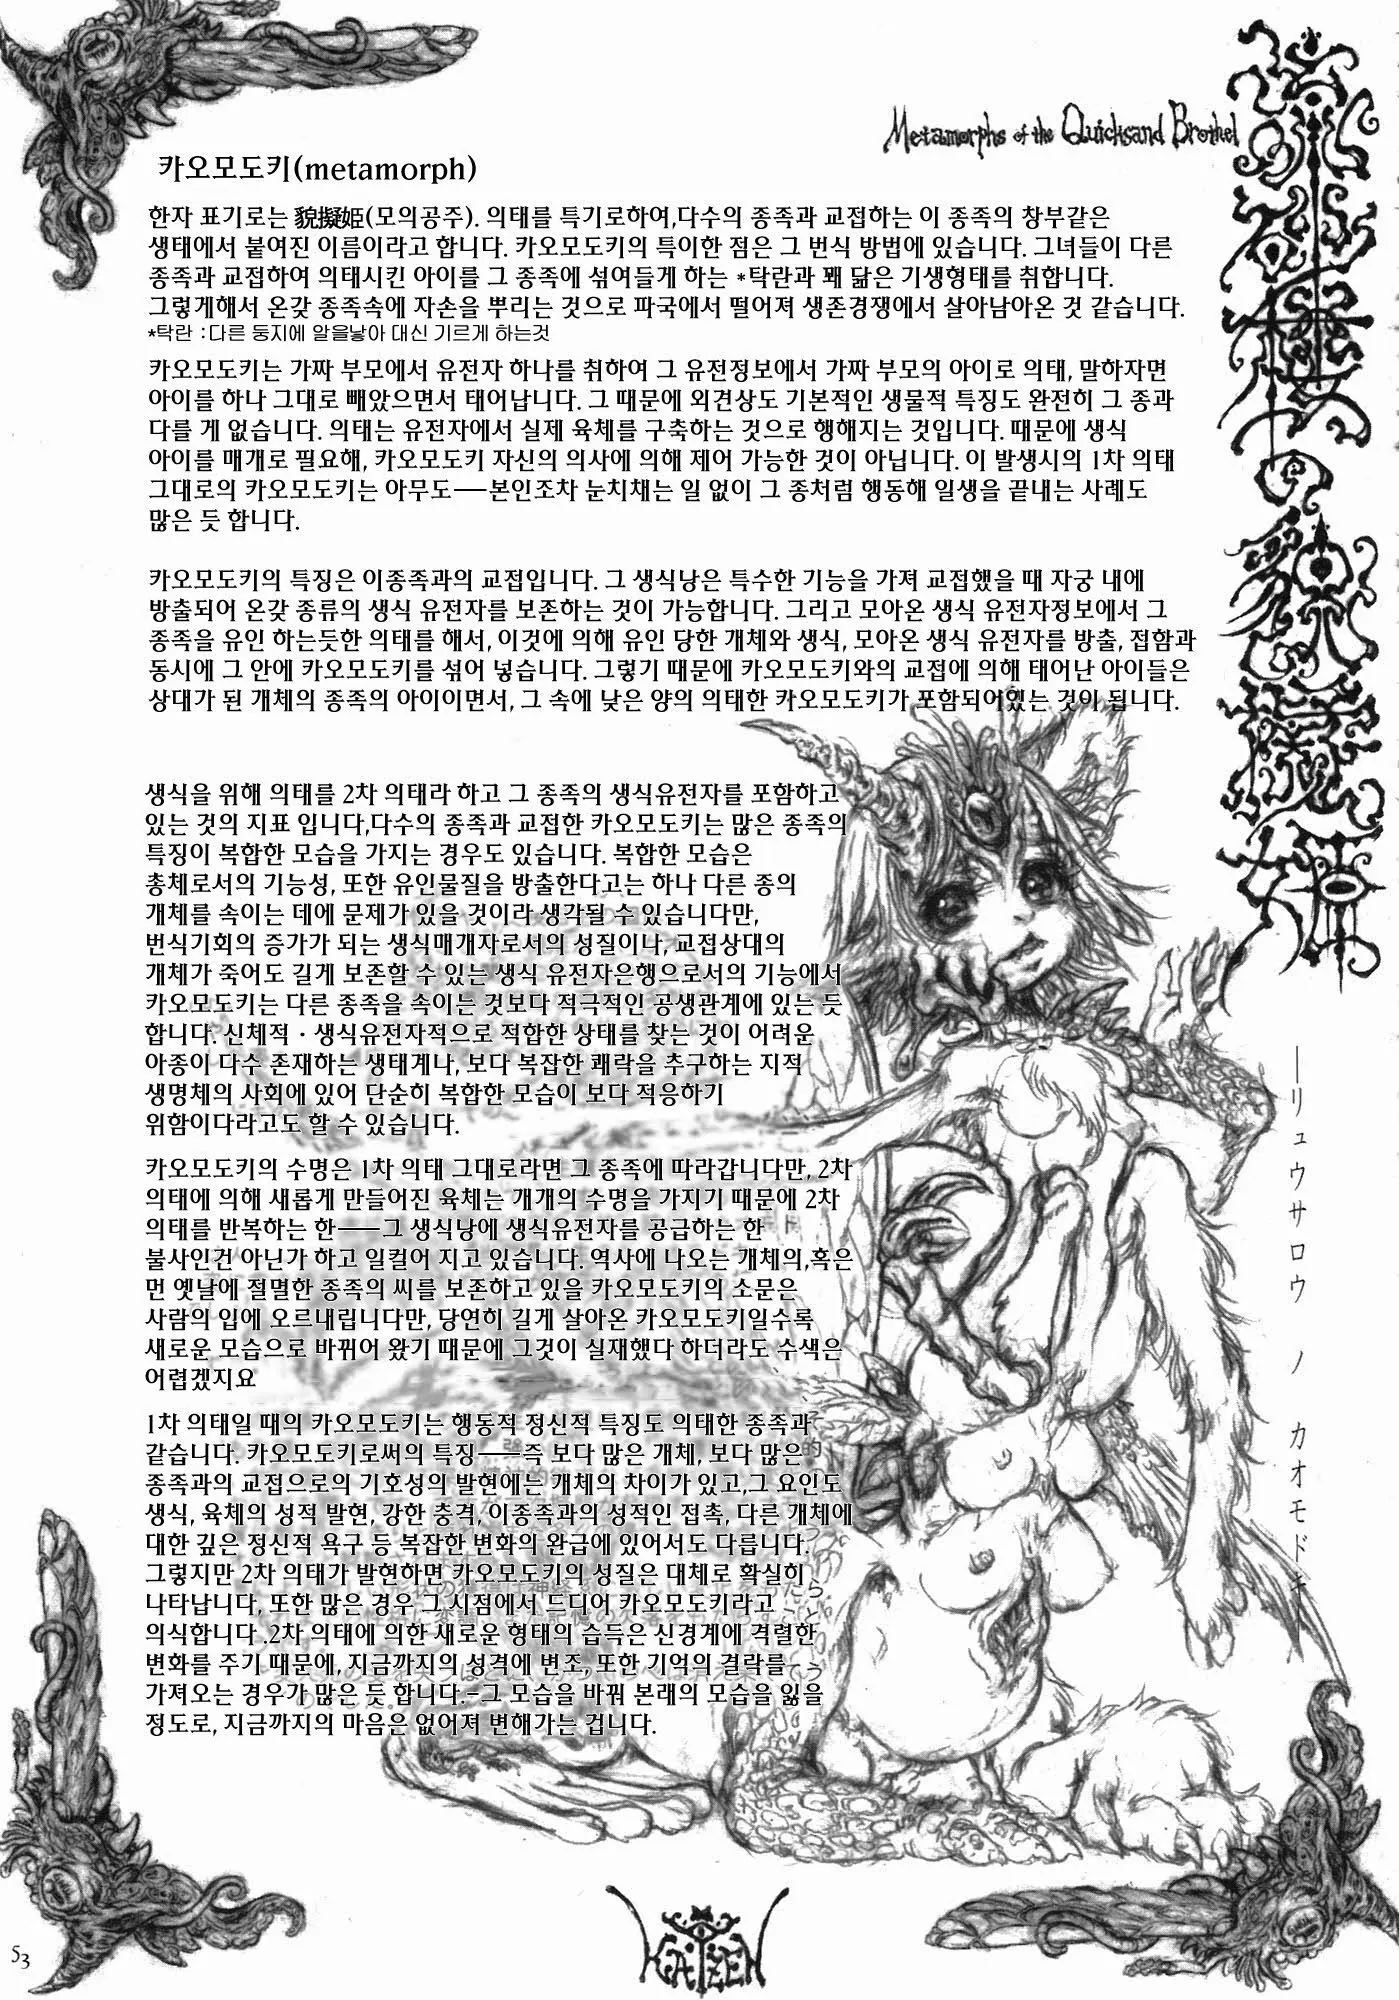 Metamorphs of the Quicksand Brothel
카오모도키(metamorph)
한자 표기로는 貌擬姫(모의공주). 의태를 특기로하여,다수의 종족과 교접하는 이 종족의 창부같은
생태에서 붙여진 이름이라고 합니다. 카오모도키의 특이한 점은 그 번식 방법에 있습니다. 그녀들이 다른
종족과 교접하여 의태시킨 아이를 그 종족에 섞여들게 하는 *탁란과 꽤 닮은 기생형태를 취합니다.
그렇게해서 온갖 종족속에 자손을 뿌리는 것으로 파국에서 떨어져 생존경쟁에서 살아남아온 것 같습니다.
*탁란 :다른 둥지에 알을낳아 대신 기르게 하는것
카오모도키는 가짜 부모에서 유전자 하나를 취하여 그 유전정보에서 가짜 부모의 아이로 의태, 말하자면
아이를 하나 그대로 빼았으면서 태어납니다. 그 때문에 외견상도 기본적인 생물적 특징도 완전히 그 종과
다를 게 없습니다. 의태는 유전자에서 실제 육체를 구축하는 것으로 행해지는 것입니다. 때문에 생식
아이를 매개로 필요해, 카오모도키 자신의 의사에 의해 제어 가능한 것이 아닙니다. 이 발생시의 1차 의태
그대로의 카오모도키는 아무도——본인조차 눈치채는 일 없이 그 종처럼 행동해 일생을 끝내는 사례도
많은 듯 합니다.
카오모도키의 특징은 이종족과의 교접입니다. 그 생식낭은 특수한 기능을 가져 교접했을 때 자궁 내에
방출되어 온갖 종류의 생식 유전자를 보존하는 것이 가능합니다. 그리고 모아온 생식 유전자정보에서 그
종족을 유인 하는듯한 의태를 해서, 이것에 의해 유인 당한 개체와 생식, 모아온 생식 유전자를 방출, 접함과
동시에 그 안에 카오모도키를 섞어 넣습니다. 그렇기 때문에 카오모도키와의 교접에 의해 태어난 아이들은
상대가 된 개체의 종족의 아이이면서, 그 속에 낮은 양의 의태한 카오모도키가 포함되어있는 것이 됩니다.
생식을 위해 의태를 2차 의태라 하고 그 종족의 생식유전자를 포함하고
있는 것의 지표 입니다,다수의 종족과 교접한 카오모도키는 많은 종족의
특징이 복합한 모습을 가지는 경우도 있습니다. 복합한 모습은
총체로서의 기능성, 또한 유인물질을 방출한다고는 하나 다른 종의
개체를 속이는 데에 문제가 있을 것이라 생각될 수 있습니다만,
번식기회의 증가가 되는 생식매개자로서의 성질이나, 교접상대의
개체가 죽어도 길게 보존할 수 있는 생식 유전자은행으로서의 기능에서
카오모도키는 다른 종족을 속이는 것보다 적극적인 공생관계에 있는 듯
합니다. 신체적 · 생식유전자적으로 적합한 상태를 찾는 것이 어려운
아종이 다수 존재하는 생태계나, 보다 복잡한 쾌락을 추구하는 지적
생명체의 사회에 있어 단순히 복합한 모습이 보다 적응하기
위함이다라고도 할 수 있습니다.
카오모도키의 수명은 1차 의태 그대로라면 그 종족에 따라갑니다만, 2차
의태에 의해 새롭게 만들어진 육체는 개개의 수명을 가지기 때문에 2차
의태를 반복하는 한——그 생식낭에 생식유전자를 공급하는 한
불사인건 아닌가 하고 일컬어 지고 있습니다. 역사에 나오는 개체의,혹은
먼 옛날에 절멸한 종족의 씨를 보존하고 있을 카오모도키의 소문은
사람의 입에 오르내립니다만, 당연히 길게 살아온 카오모도키일수록
새로운 모습으로 바뀌어 왔기 때문에 그것이 실재했다 하더라도 수색은
어렵겠지요
1차 의태일 때의 카오모도키는 행동적 정신적 특징도 의태한 종족과
같습니다. 카오모도키로써의 특징——즉 보다 많은 개체, 보다 많은
종족과의 교접으로의 기호성의 발현에는 개체의 차이가 있고,그 요인도
생식, 육체의 성적 발현, 강한 충격, 이종족과의 성적인 접촉, 다른 개체에
대한 깊은 정신적 욕구 등 복잡한 변화의 완급에 있어서도 다릅니다.
그렇지만 2차 의태가 발현하면 카오모도키의 성질은 대체로 확실히
나타납니다, 또한 많은 경우 그 시점에서 드디어 카오모도키라고
의식합니다 .2차 의태에 의한 새로운 형태의 습득은 신경계에 격렬한
변화를 주기 때문에, 지금까지의 성격에 변조, 또한 기억의 결락을
가져오는 경우가 많은 듯 합니다.-그 모습을 바꿔 본래의 모습을 잃을
정도로, 지금까지의 마음은 없어져 변해가는 겁니다.
—リュウサロウ ノ カオモドキ
53